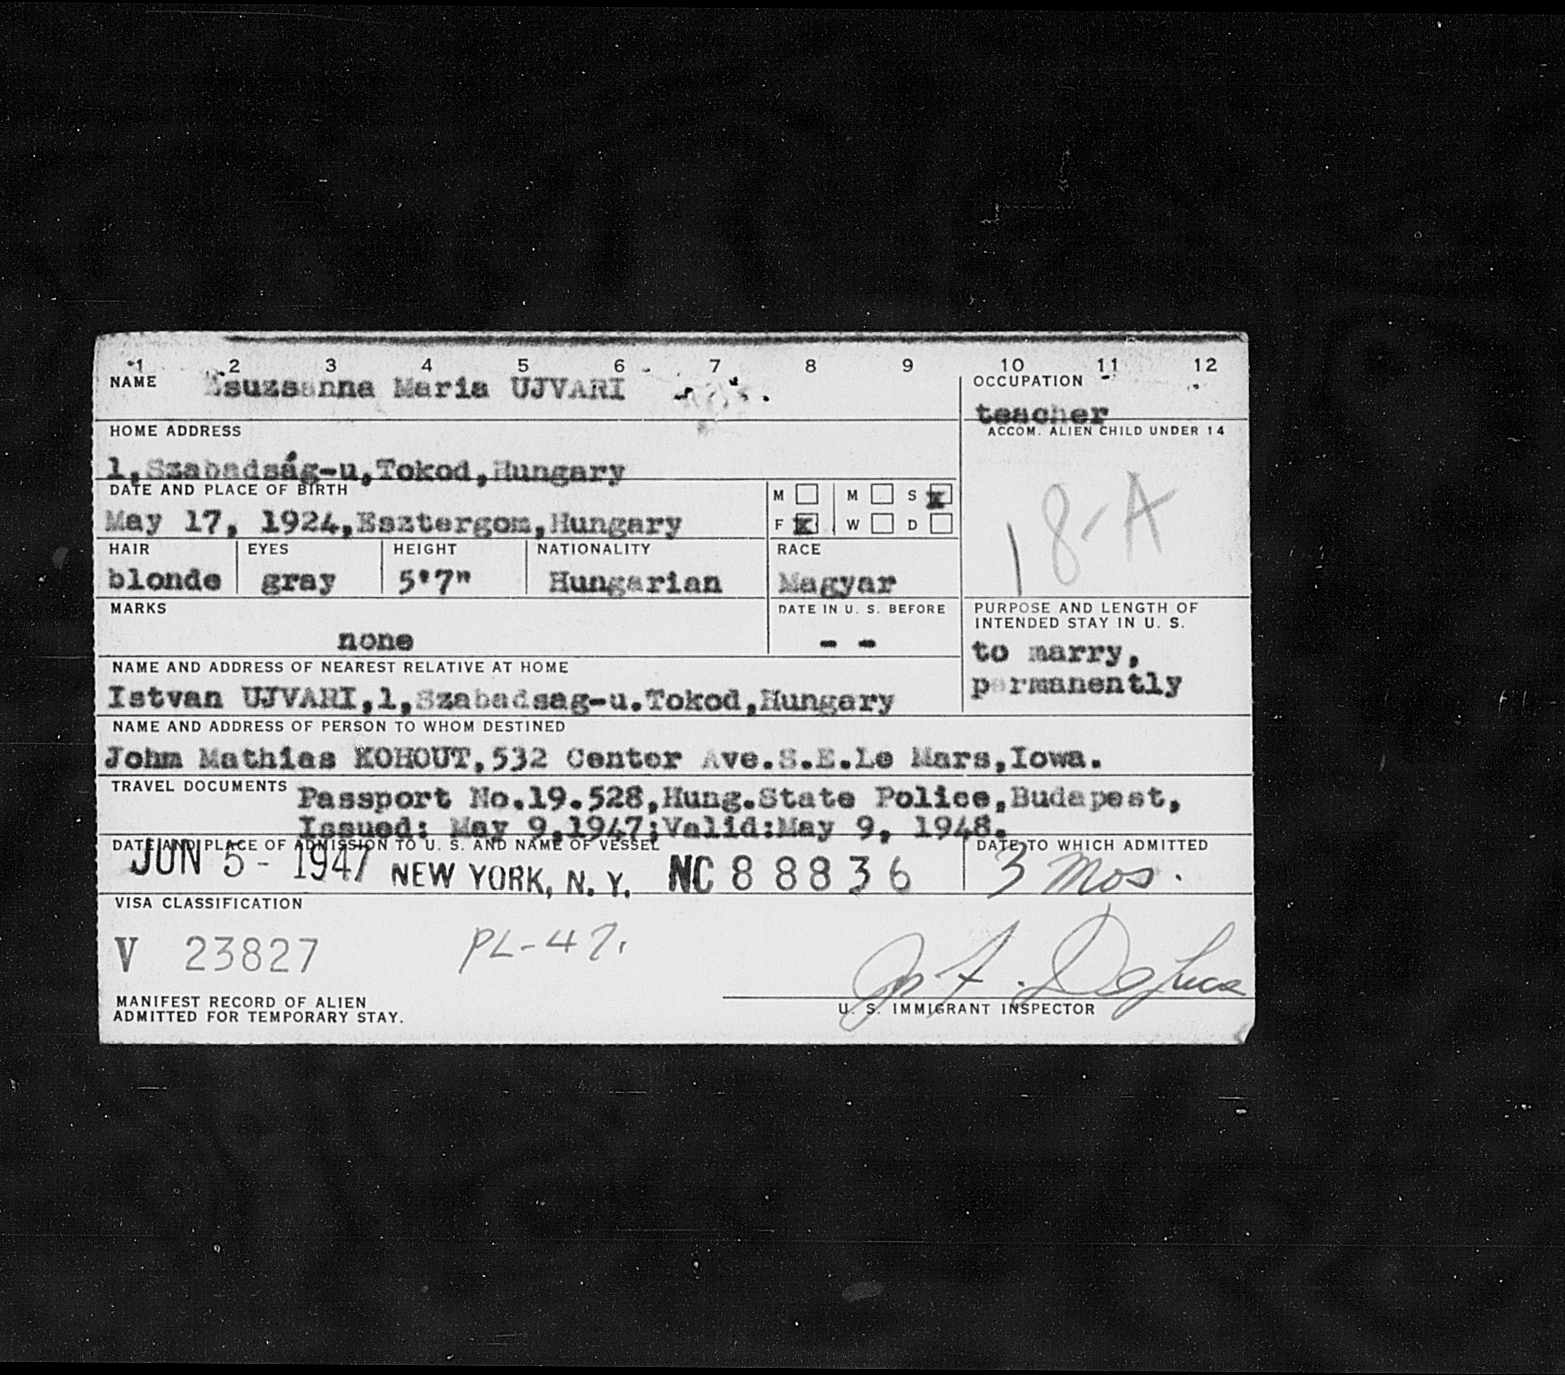 1 2 3 4 5 6 7 8 9 10 11 12
NAME Zsuzsanna Maria UJVARI
OCCUPATION
teacher
HOME ADDRESS
1,Szabadság-u,Tokod,Hungary
ACCOM. ALIEN CHILD UNDER 14
18-A
DATE AND PLACE OF BIRTH
May 17, 1924,Esztergom,Hungary
M M S x
F x W D
HAIR EYES HEIGHT NATIONALITY RACE
blonde gray 5'7" Hungarian Magyar
MARKS
none
DATE IN U. S. BEFORE
- -
PURPOSE AND LENGTH OF
INTENDED STAY IN U. S.
to marry,
permanently
NAME AND ADDRESS OF NEAREST RELATIVE AT HOME
Istvan UJVARI,1,Szabadsag-u.Tokod,Hungary
NAME AND ADDRESS OF PERSON TO WHOM DESTINED
John Mathias KOHOUT,532 Center Ave.S.E.Le Mars,Iowa.
TRAVEL DOCUMENTS Passport No.19.528,Hung.State Police,Budapest,
Issued: May 9,1947;Valid:May 9, 1948.
DATE AND PLACE OF ADMISSION TO U. S. AND NAME OF VESSEL
JUN 5 - 1947 NEW YORK, N. Y. NC 88836
DATE TO WHICH ADMITTED
3 Mos.
VISA CLASSIFICATION
V 23827 PL-47.
MANIFEST RECORD OF ALIEN
ADMITTED FOR TEMPORARY STAY.
U. S. IMMIGRANT INSPECTOR